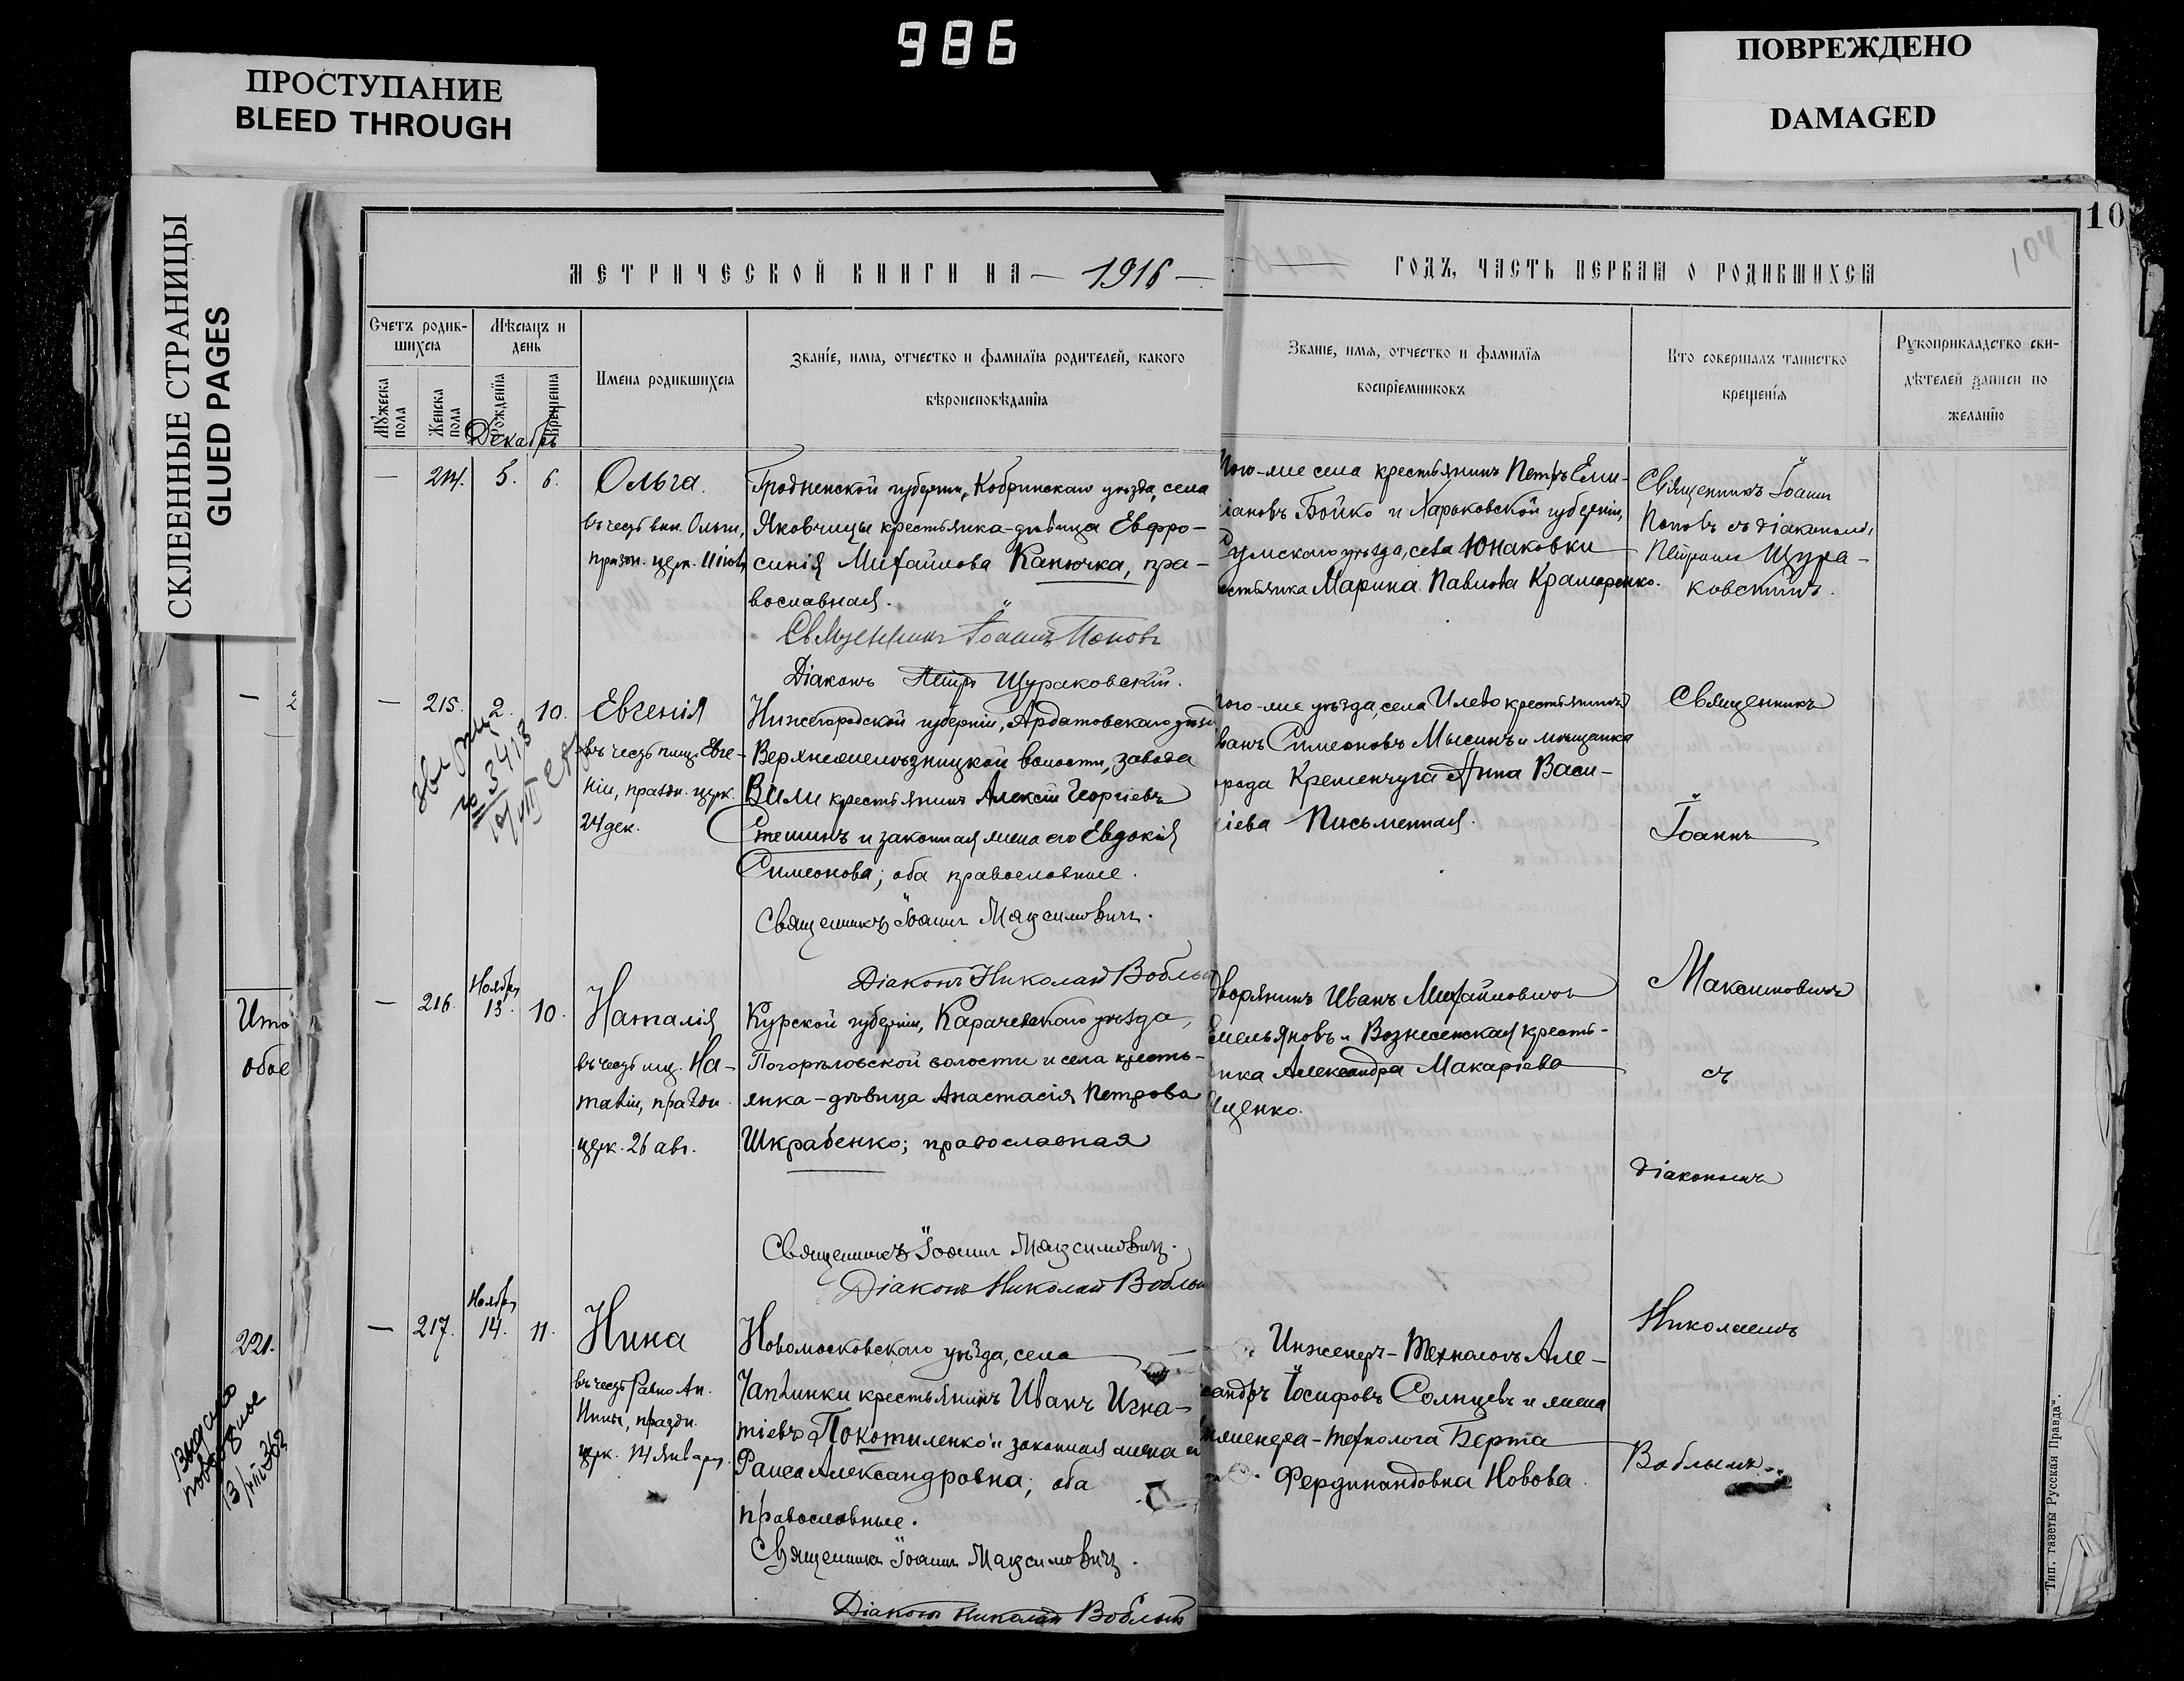 986
ПРОСТУПАНИЕ
BLEED THROUGH
ПОВРЕЖДЕНО
DAMAGED
СКЛЕЕННЫЕ СТРАНИЦЫ
GLUED PAGES
10
МЕТРИЧЕСКОЙ КНИГИ НА — 1916 —
ГОДЪ, ЧАСТЬ ПЕРВАЯ О РОДИВШИХСЯ
Счетъ родив-
шихся
Мѣсяцъ и
день
Мужеска
пола
Женска
пола
Рожденія
Крещенія
Имена родившихся
Званіе, имя, отчество и фамилія родителей, какого
вѣроисповѣданія
Званіе, имя, отчество и фамилія
воспріемниковъ
Кто совершалъ таинство
крещенія
Рукоприкладство сви-
дѣтелей записи по
желанію
Декабрь
— 214. 5. 6.
Ольга.
въ честь вел. Ольги,
праздн. церк. 11 іюля
Гродненской губерніи, Кобринскаго уѣзда, села
Яковчицы крестьянка-дѣвица Евфро-
синія Михайлова Канючка, пра-
вославная.
Священникъ Іоаннъ Поповъ
Діаконъ Петръ Щураковскій.
того-же села крестьянинъ Петръ Еми-
ліановъ Бойко и Харьковской губерніи,
Сумскаго уѣзда, села Юнаковки
крестьянка Марина Павлова Крамаренко.
Священникъ Іоаннъ
Поповъ съ діакономъ
Петромъ Щура-
ковскимъ.
— 215. 2. 10.
Евгенія
въ честь прмц. Евге-
ніи, праздн. церк.
24 дек.
Нижегородской губерніи, Ардатовскаго уѣзда
Верхнежелѣзницкой волости, завода
Вили крестьянинъ Алексій Георгіевъ
Стешинъ и законная жена его Евдокія
Симеонова; оба православные.
Священникъ Іоаннъ Максимовичъ.
Діаконъ Николай Воблый
того-же уѣзда, села Илево крестьянинъ
Иванъ Симеоновъ Мысинъ и мѣщанка
города Кременчуга Анна Васи-
ліева Письменная.
Священникъ
Іоаннъ
Ноября
— 216. 13. 10.
Наталія
въ честь мц. На-
таліи, праздн.
церк. 26 авг.
Курской губерніи, Карачевскаго уѣзда,
Погорѣловской волости и села кресть-
янка-дѣвица Анастасія Петрова
Шкрабенко; православная
Священникъ Іоаннъ Максимовичъ.
Діаконъ Николай Воблый
Дворянинъ Иванъ Михайловичъ
Емельяновъ и Вознесенская кресть-
янка Александра Макаріева
Яценко.
Максимовичъ
съ
діакономъ
Ноября
— 217. 14. 11.
Нина
въ честь Равно Ап.
Нины, праздн.
церк. 14 января.
Новомосковскаго уѣзда, села
Чаплинки крестьянинъ Иванъ Игна-
тіевъ Покотиленко и законная жена его
Раиса Александровна; оба
православные.
Священникъ Іоаннъ Максимовичъ.
Діаконъ Николай Воблый
Инженеръ-технологъ Але-
ксандръ Іосифовъ Солнцевъ и жена
инженера-технолога Берта
Фердинандовна Новова.
Николаемъ
Воблымъ.
Ито
обое
221.
Тип. газеты „Русская Правда".